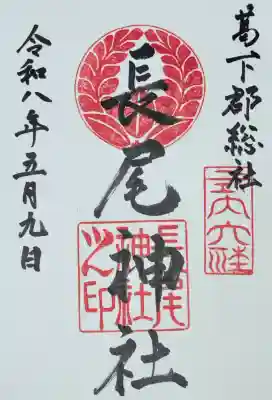 葛下郡総社
長尾神社
長尾神社之印
令和八年五月九日